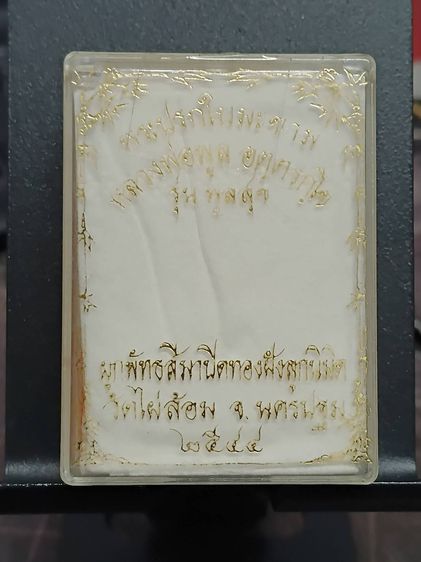 พระปรกใบมะขาม
หลวงพ่อพูล อตฺตรกฺโข
รุ่น พูลสุข
ผูกพัทธสีมาปิดทองฝังลูกนิมิต
วัดไผ่ล้อม จ. นครปฐม
๒๕๔๔